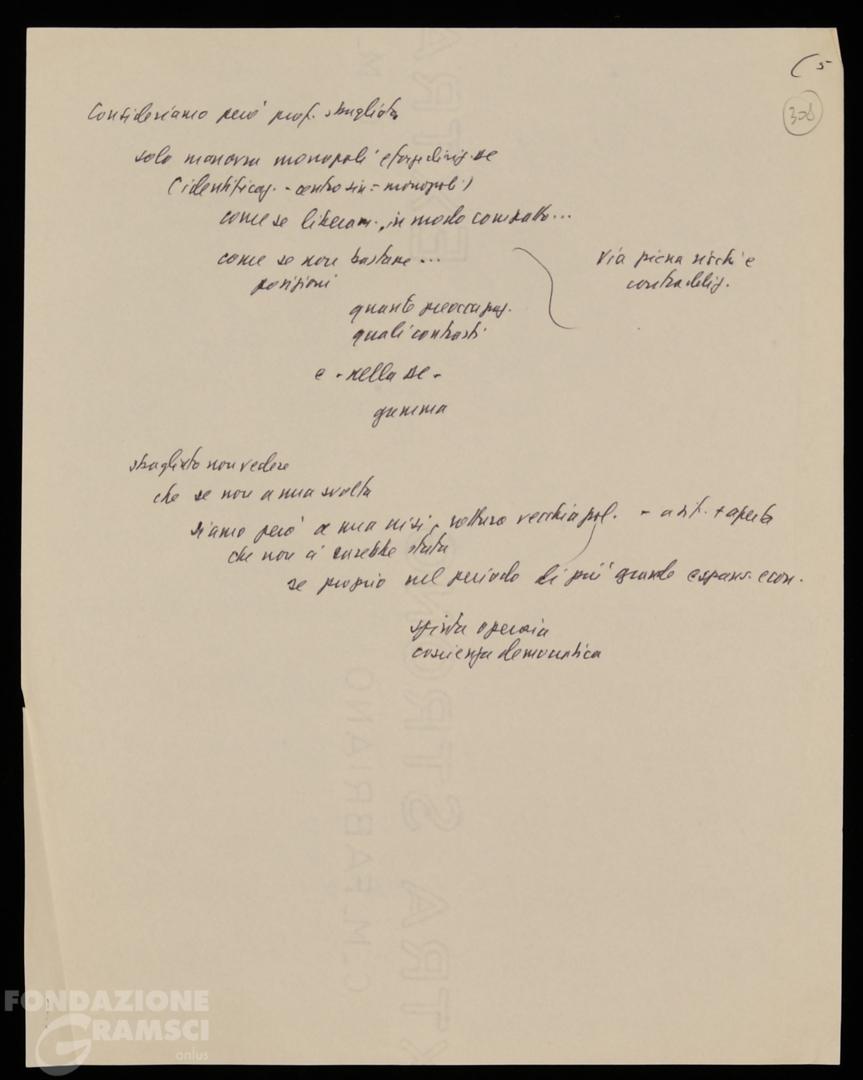 (5
306
Consideriamo però prof. sbagliato
solo manovra monopoli e forze dirig. DC
(identificaz. - centro sin = monopoli)
come se liberam., in modo compatto...
come se non bastare...
posizioni
quante preoccupaz.
quali contrasti
e - nella DC -
Via piena rischi e
contraddiz.
sbagliato non vedere
che se non a una svolta
siamo però a una crisi, rottura vecchia pol. - a sit. + aperta
che non ci sarebbe stata
se proprio nel periodo di più grande espans. econ.
spinta operaia
coscienza democratica
C.M. FABRIANO
EXTRA STRONG
FONDAZIONE
GRAMSCI
onlus